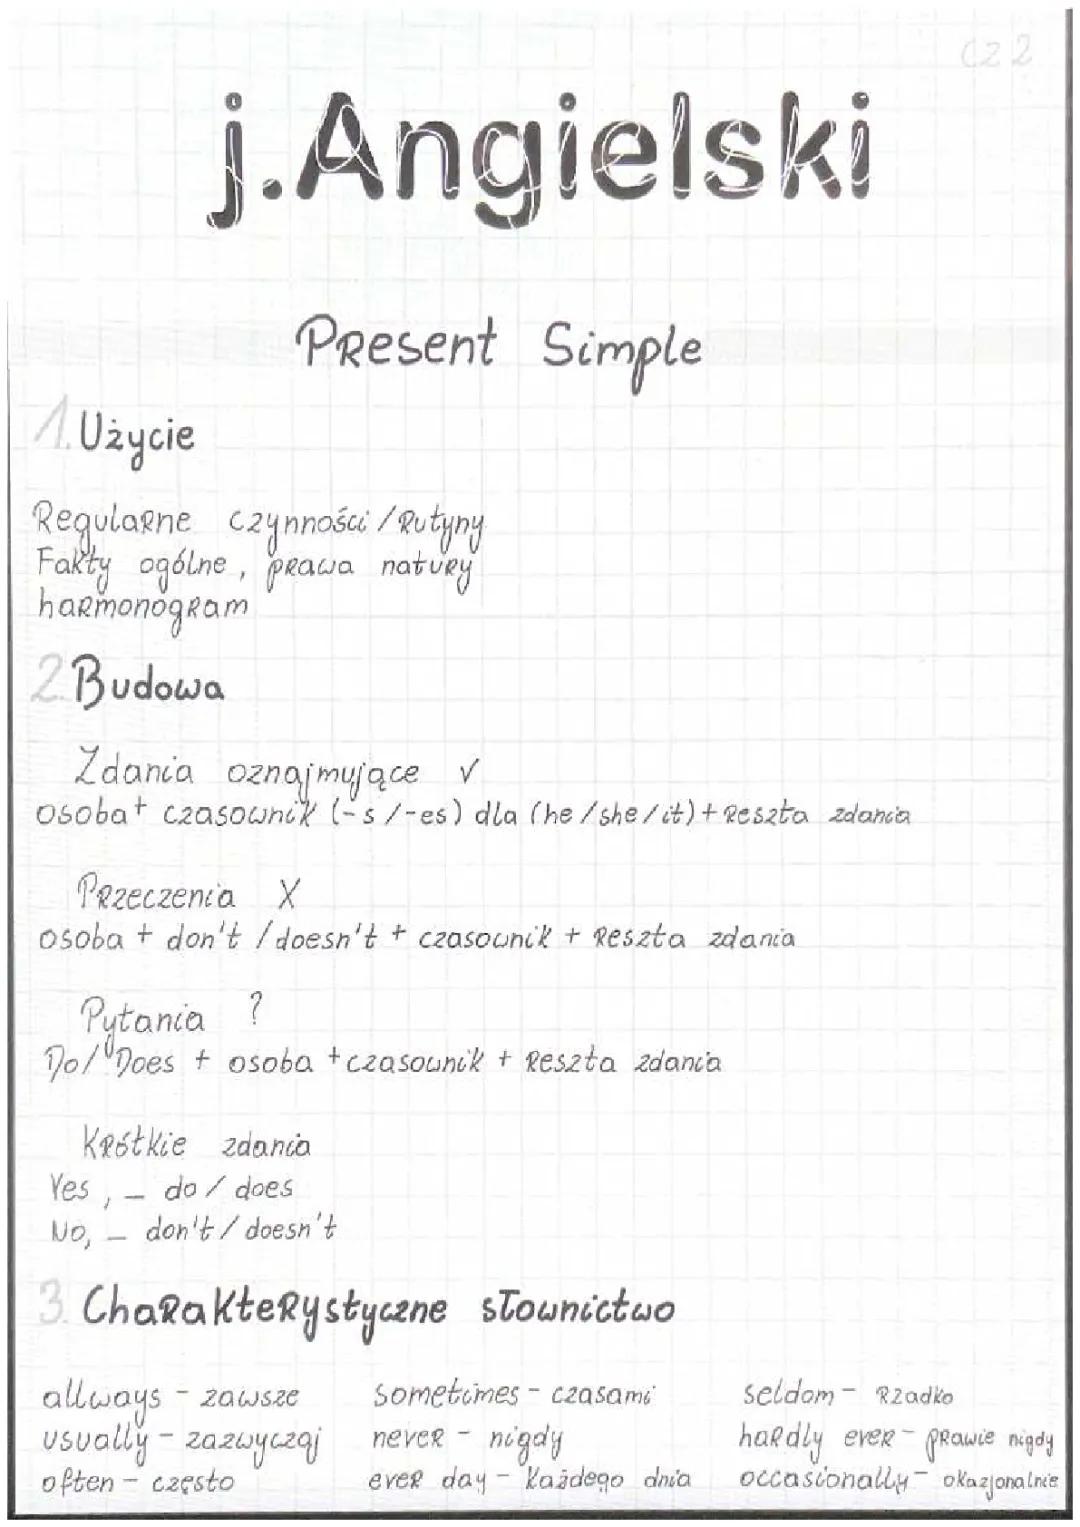 cz 2
j.Angielski
Present Simple
1. Użycie
Regularne czynności / Rutyny
Fakty ogólne, prawa natury
harmonogram
2. Budowa
Zdania oznajmujące ✓
osoba + czasownik (-s /-es) dla (he / she / it) + Reszta zdania
Przeczenia X
osoba + don't / doesn't + czasownik + Reszta zdania
Pytania ?
Do / Does + osoba + czasownik + Reszta zdania
Krótkie zdania
Yes, _ do / does
No, _ don't / doesn't
3. Charakterystyczne słownictwo
allways - zawsze sometimes - czasami seldom - Rzadko
usually - zazwyczaj never - nigdy hardly ever - prawie nigdy
often - często ever day - Każdego dnia occasionally - okazjonalnie